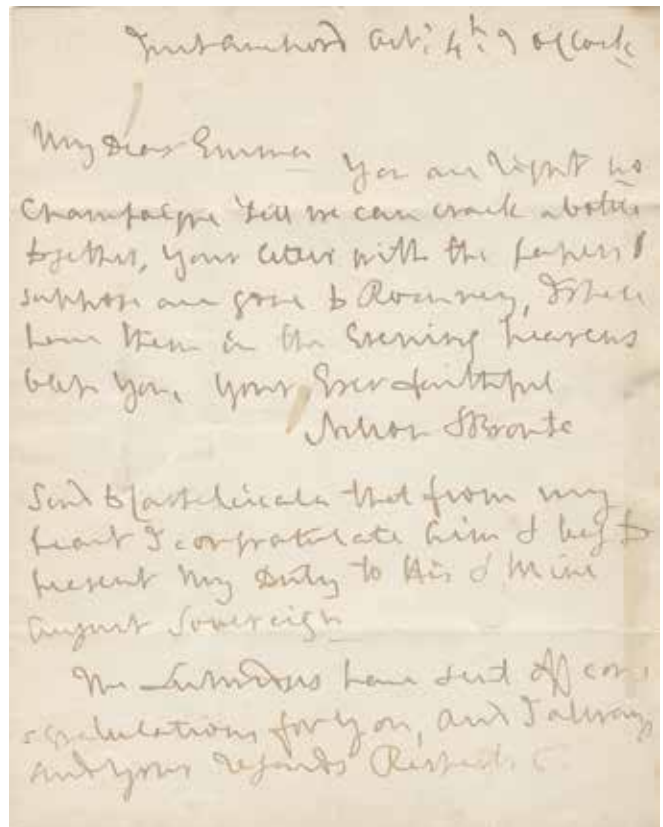 Oct: 4th: 9 o'Clock
My Dear Emma
You are right no
Champagne till we can crack a bottle
together, Your letter with the papers I
suppose are gone to Romney, I shall
have them in the Evening heavens
bless You, Your Ever faithful
Nelson & Bronte
Send to Castelcicala that from my
heart I congratulate him & beg to
present My Duty to His & Mine
August Sovereign
have sent off con
gratulations for You, and I always
send your regards Respects &